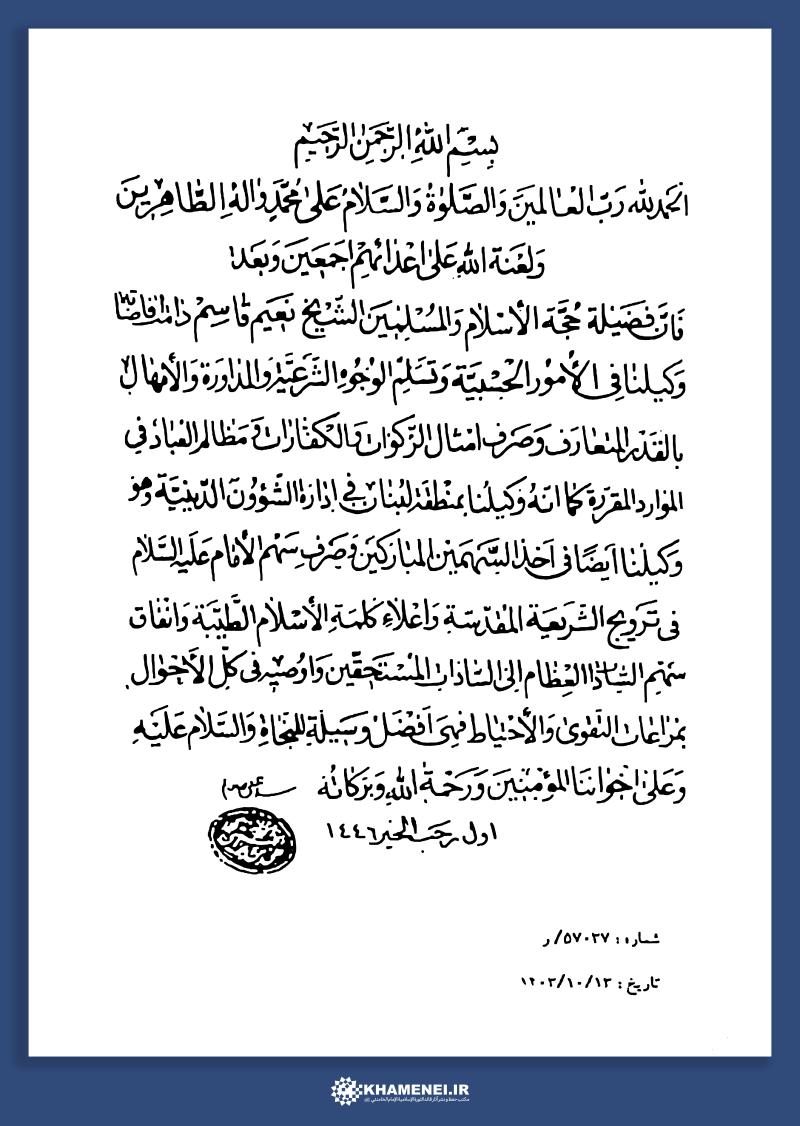 بسم الله الرحمن الرحیم
الحمدلله رب العالمین والصلوة والسلام علی محمد واله الطاهرین
ولعنة الله علی اعدائهم اجمعین وبعد
فان فضیلة حجة الاسلام والمسلمین الشیخ نعیم قاسم دامت افاضاته
وکیلنا فی الأمور الحسبیة وتسلم الوجوه الشرعیة والمداورة والأمهال
بالقدر المتعارف وصرف امثال الزکوات والکفارات ومظالم العباد فی
الموارد المقررة کما انه وکیلنا بمنطقة لبنان فی ادارة الشؤون الدینیة وهو
وکیلنا ایضا فی اخذ السهمین المبارکین وصرف سهم الأمام علیه السلام
فی ترویج الشریعة المقدسة واعلاء کلمة الأسلام الطیبة وانفاق
سهم السادة العظام الی السادات المستحقین واوصیه فی کل الأحوال
بمراعات التقوی والأحتیاط فهی افضل وسیلة للنجاة والسلام علیه
وعلی اخواننا المؤمنین ورحمة الله وبرکاته
اول رجب الخیر ١٤٤٦
شماره: ٥٧٠٢٧/ر
تاریخ: ١٤٠٣/١٠/١٣
KHAMENEI.IR